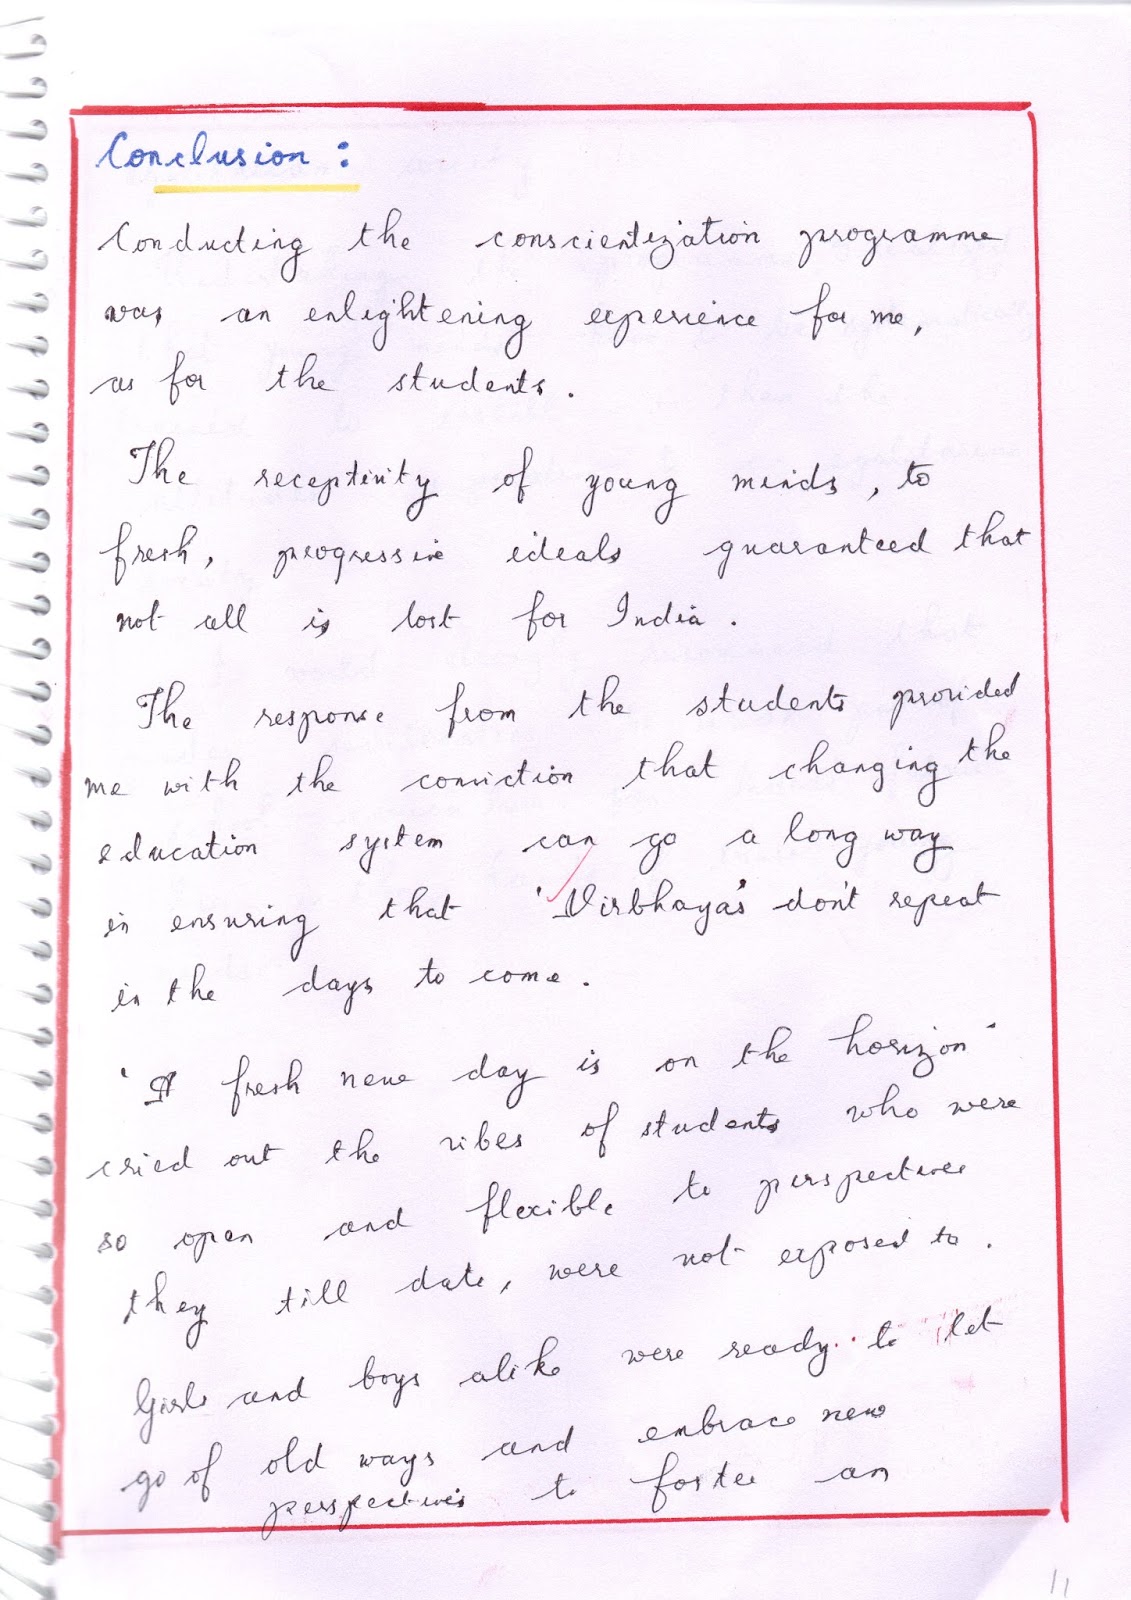 Conclusion :
Conducting the conscientization programme
was an enlightening experience for me,
as for the students.
The receptivity of young minds, to
fresh, progressive ideals guaranteed that
not all is lost for India.
The response from the students provided
me with the conviction that changing the
education system can go a long way
in ensuring that 'Nirbhaya's don't repeat
in the days to come.
'A fresh new day is on the horizon'
cried out the vibes of students who were
so open and flexible to perspectives
they till date, were not exposed to.
Girls and boys alike were ready to let
go of old ways and embrace new
perspectives to foster an
11